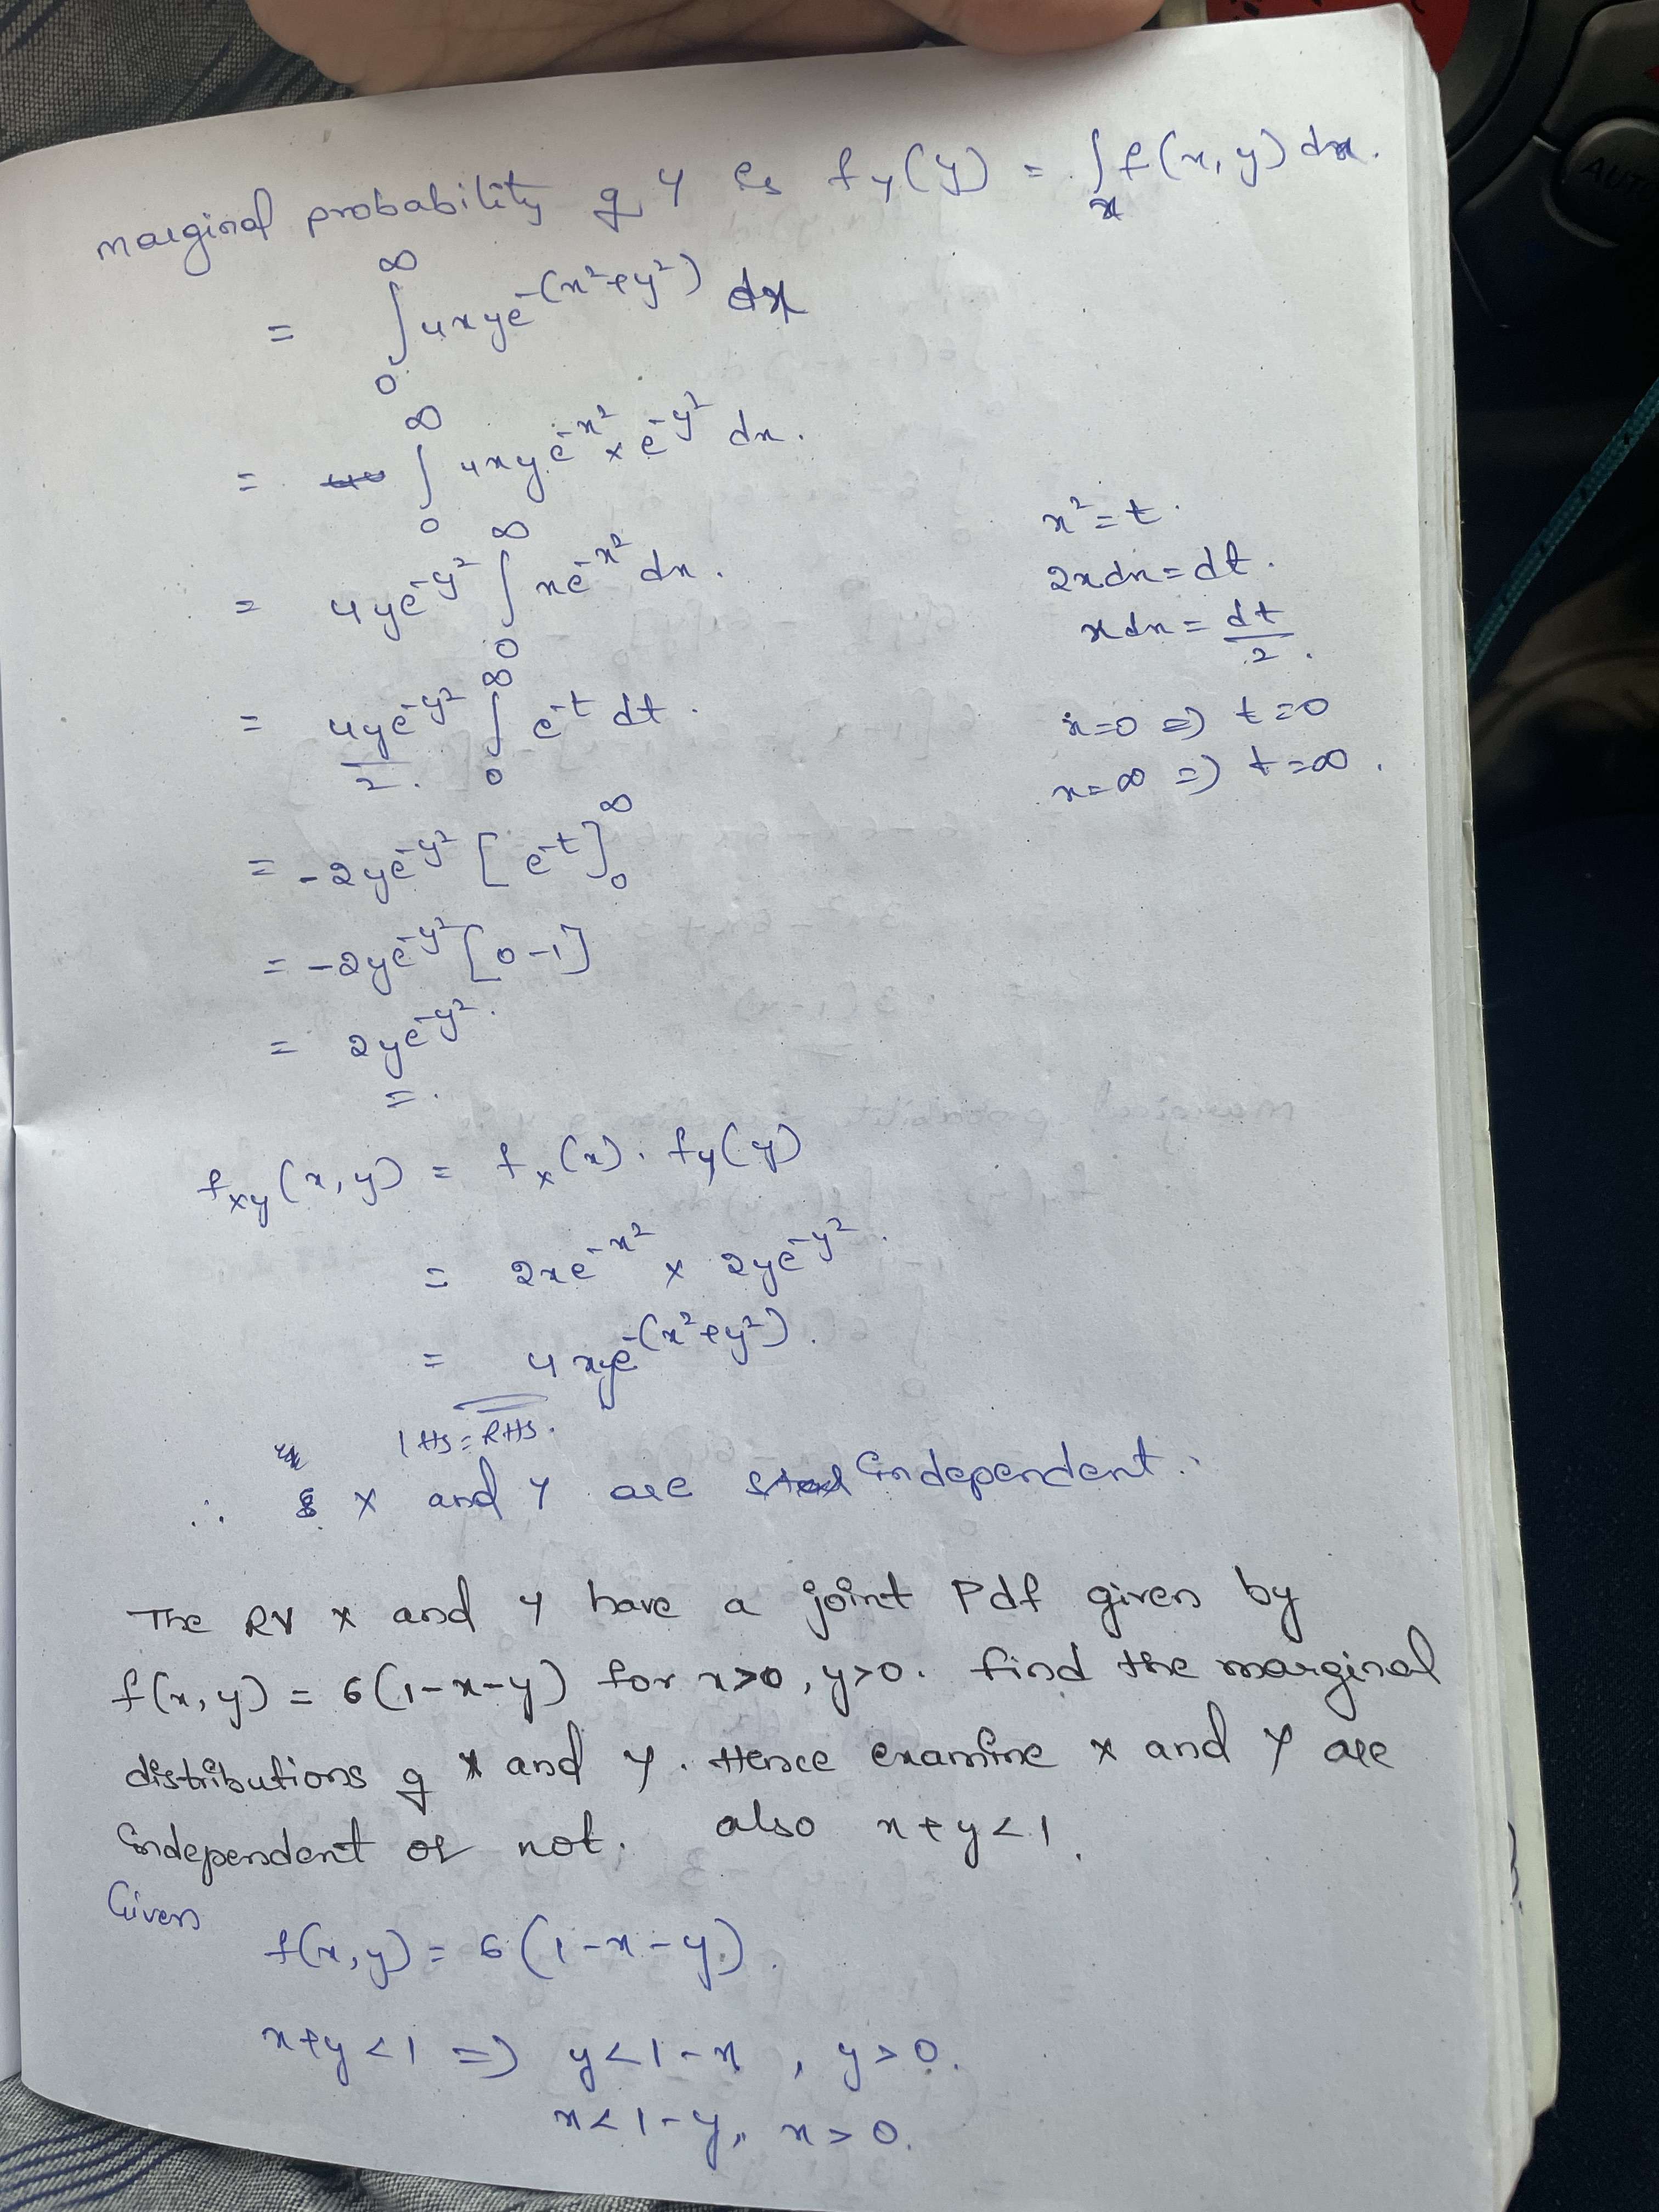 marginal probability of Y is f_Y(y) = ∫_x f(x,y) dx.
= ∫_0^∞ 4xye^-(x²+y²) dx
= ∫_0^∞ 4xye^-x² × e^-y² dx.
= 4ye^-y² ∫_0^∞ xe^-x² dx.
x² = t.
2xdx = dt.
xdx = dt/2.
= 4ye^-y²/2. ∫_0^∞ e^-t dt.
x=0 => t=0
x=∞ => t=∞.
= -2ye^-y² [e^-t]_0^∞
= -2ye^-y² [0-1]
= 2ye^-y².
f_xy(x,y) = f_x(x). f_y(y)
= 2xe^-x² × 2ye^-y².
= 4xye^-(x²+y²).
LHS = RHS.
∴ X and Y are independent.
The RV X and Y have a joint Pdf given by
f(x,y) = 6(1-x-y) for x>0, y>0. find the marginal
distributions of X and Y. Hence examine X and Y are
independent or not. also x+y<1.
Given
f(x,y) = 6(1-x-y).
x+y<1 => y<1-x, y>0.
x<1-y, x>0.